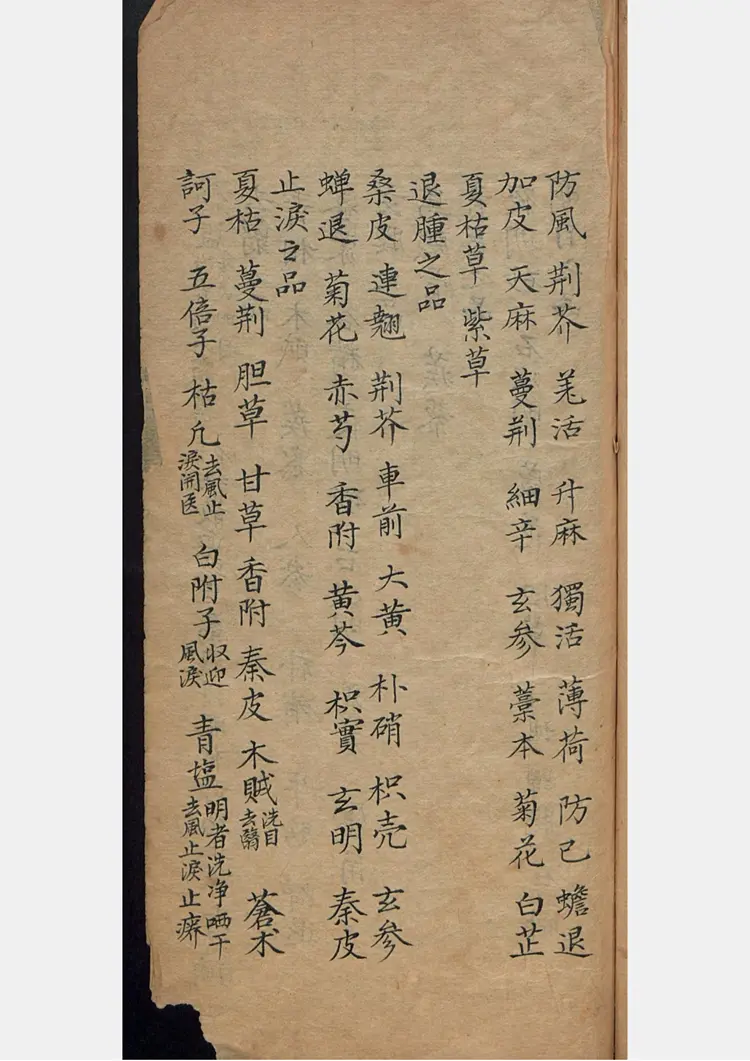 防風 荆芥 羌活 升麻 獨活 薄荷 防己 蟾退
加皮 天麻 蔓荆 細辛 玄参 藁本 菊花 白芷
夏枯草 紫草
退腫之品
桑皮 連翹 荆芥 車前 大黄 朴硝 枳壳 玄参
蝉退 菊花 赤芍 香附 黄芩 枳實 玄明 秦皮
止淚之品
夏枯 蔓荆 胆草 甘草 香附 秦皮 木賊 洗目去翳 蒼术
訶子 五倍子 枯凡 去風止淚開医 白附子 収迎風淚 青塩 明者洗净晒干去風止淚止癢